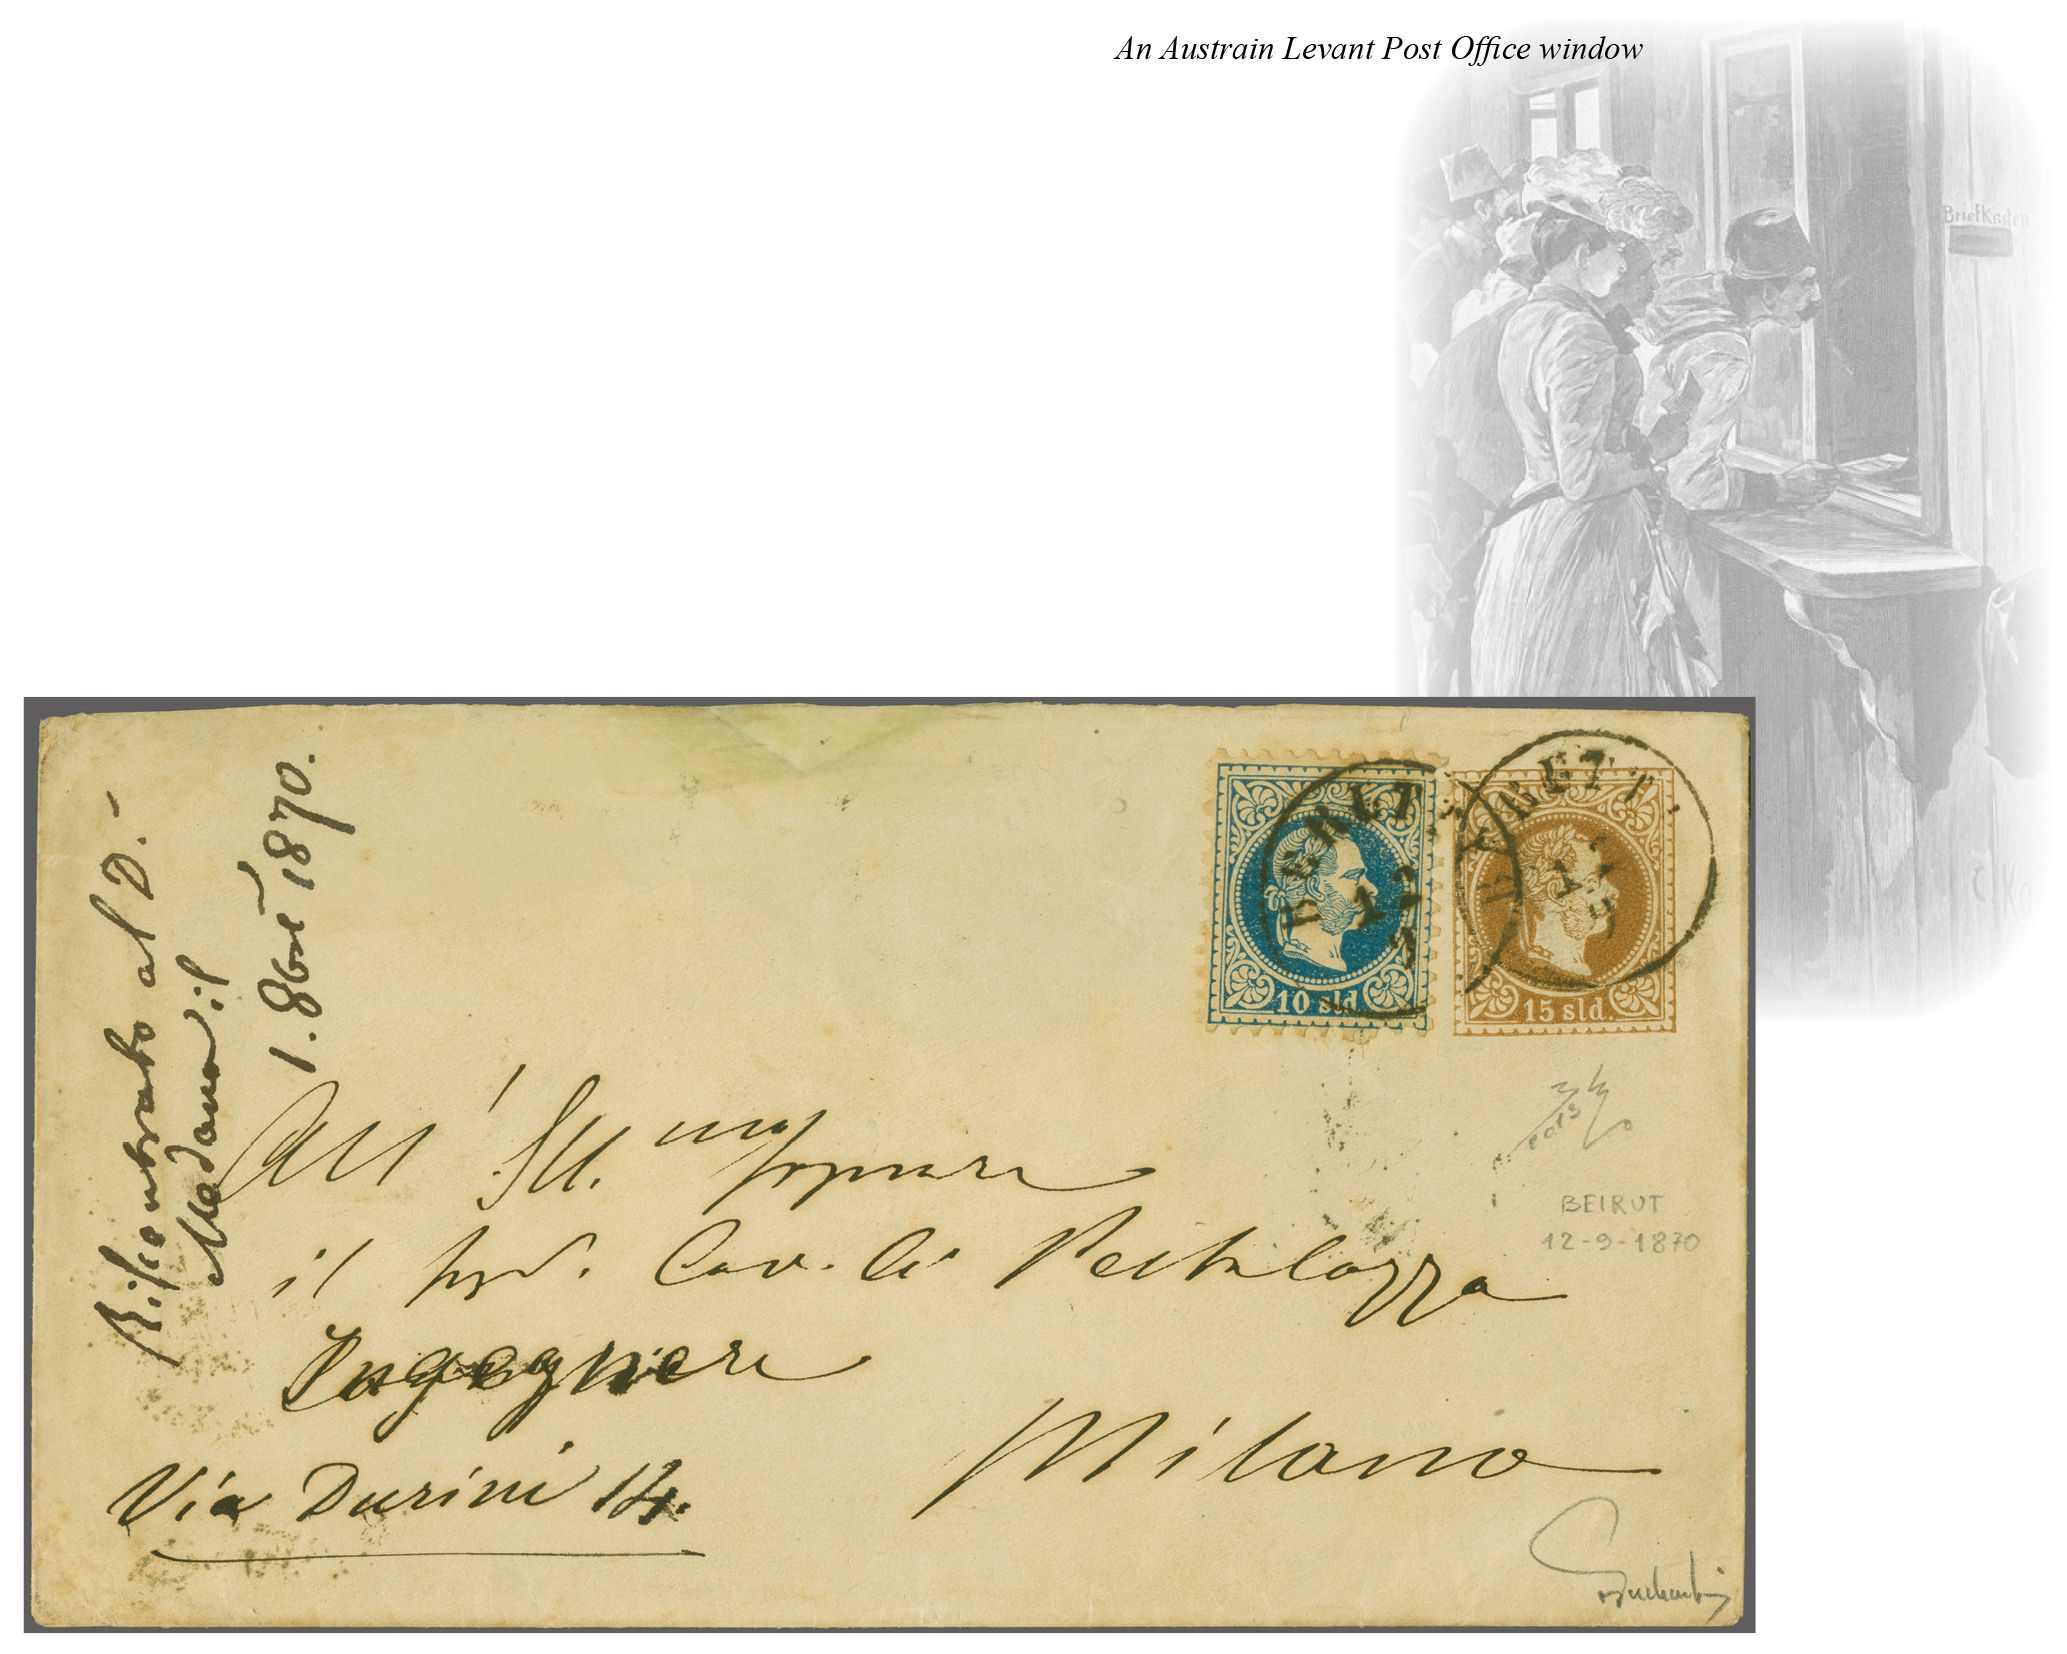 An Austrain Levant Post Office window
BriefKasten
Riscontrato al D.
Madano il
1. 8bre 1870.
BEIRUT
12
9
BEYRUT
12
9
10 sld.
15 sld.
All' Ill.mo Signore
il Cav.
Pestalozza
Ingegnere
Milano
Via Durini 14.
BEIRUT
12-9-1870